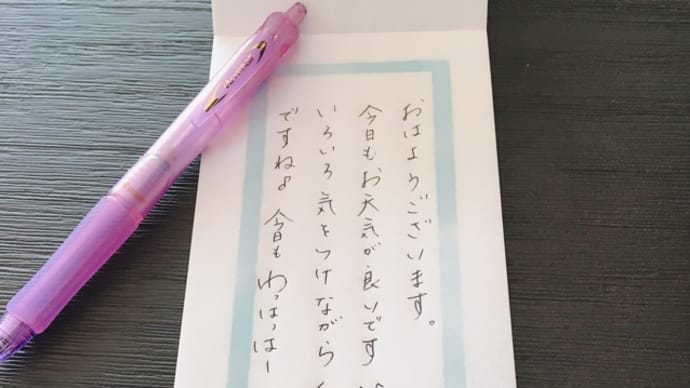 おはようございます。
今日もお天気が良いです
いろいろ気をつけながら
ですね♪ 今日もわっはっはー